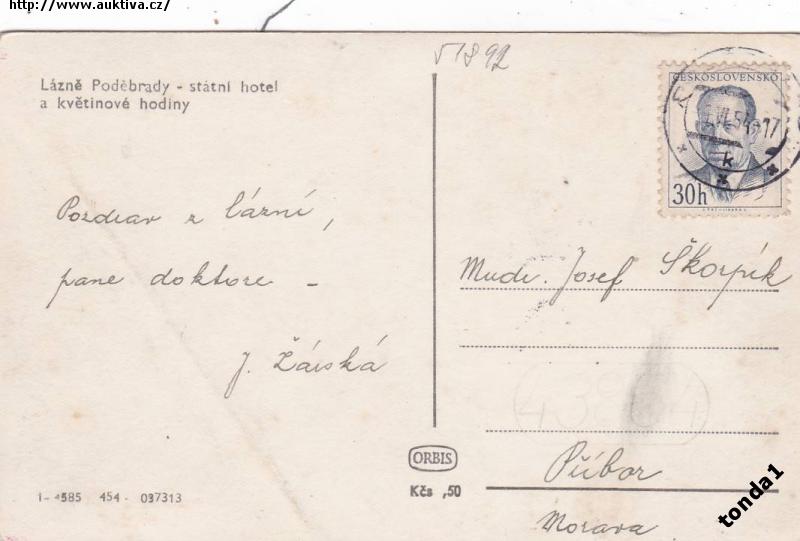 http://www.auktiva.cz/
51892
Lázně Poděbrady - státní hotel
a květinové hodiny
ČESKOSLOVENSKO
VI.54-17
k
30h
Pozdrav z lázní,
pane doktore -
J. Žárská
Mudr. Josef Škorpík
Příbor
Morava
ORBIS
Kčs ,50
1-4585 454 - 037313
tonda1